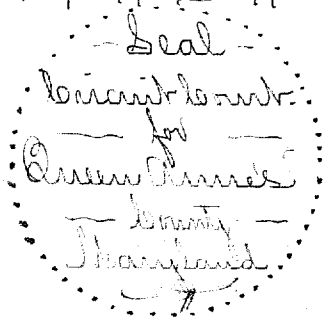 Seal
Circuit Court
for
Queen Anne's
County
Maryland